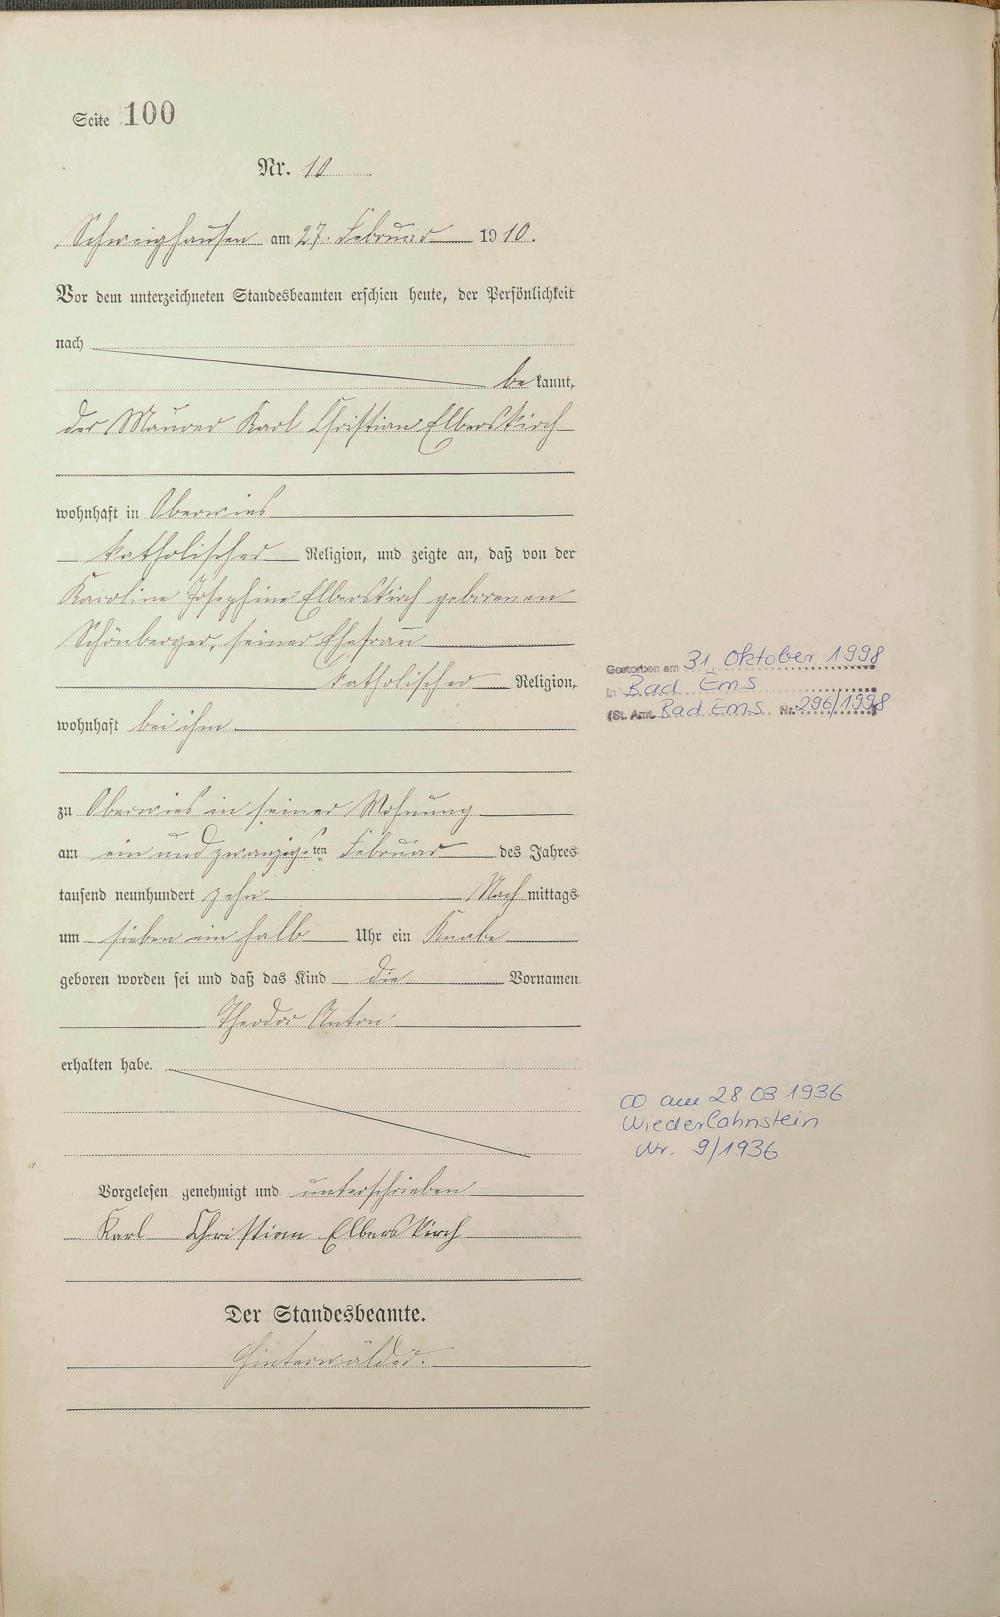 Seite 100
Nr. 10
Schweighausen am 27. Februar 1910.
Vor dem unterzeichneten Standesbeamten erschien heute, der Persönlichkeit
nach
be kannt,
der Maurer Karl Christian Elberskirch
wohnhaft in Oberwies
katholischer Religion, und zeigte an, daß von der
Karoline Josephine Elberskirch geborenen
Schönberger, seiner Ehefrau
katholischer Religion,
wohnhaft bei ihm
zu Oberwies in seiner Wohnung
am ein und zwanzigsten Februar des Jahres
tausend neunhundert zehn Nach mittags
um sieben ein halb Uhr ein Knabe
geboren worden sei und daß das Kind die Vornamen
Theodor Anton
erhalten habe.
Vorgelesen genehmigt und unterschrieben
Karl Christian Elberskirch
Der Standesbeamte.
Hinterwälder.
Gestorben am 31. Oktober 1998
in Bad Ems
(St. Amt Bad Ems Nr. 296/1998)
∞ am 28 03 1936
Niederlahnstein
Nr. 9/1936